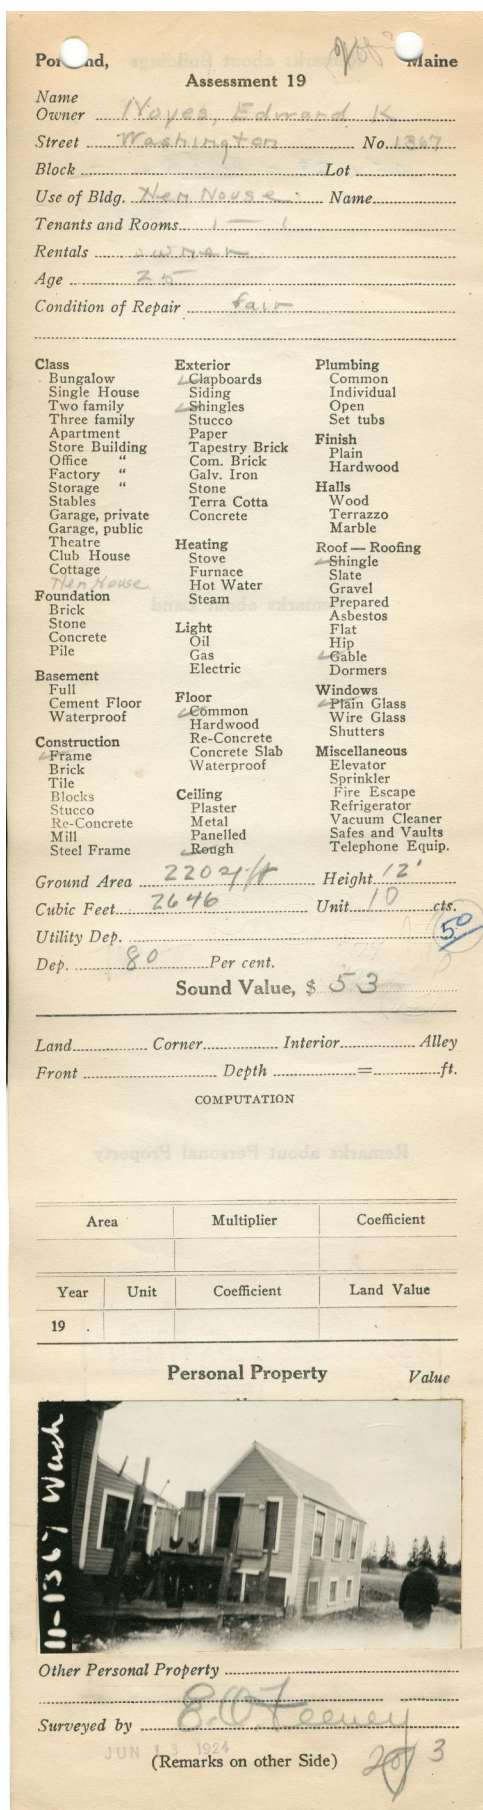 Portland, Maine
Assessment 19
Name
Owner Noyes, Edward K
Street Washington No. 1367
Block Lot
Use of Bldg. Hen House Name
Tenants and Rooms 1 — 1
Rentals owner
Age 25
Condition of Repair fair
Class
Bungalow
Single House
Two family
Three family
Apartment
Store Building
Office "
Factory "
Storage "
Stables
Garage, private
Garage, public
Theatre
Club House
Cottage
Hen House
Foundation
Brick
Stone
Concrete
Pile
Basement
Full
Cement Floor
Waterproof
Construction
Frame
Brick
Tile
Blocks
Stucco
Re-Concrete
Mill
Steel Frame
Exterior
Clapboards
Siding
Shingles
Stucco
Paper
Tapestry Brick
Com. Brick
Galv. Iron
Stone
Terra Cotta
Concrete
Heating
Stove
Furnace
Hot Water
Steam
Light
Oil
Gas
Electric
Floor
Common
Hardwood
Re-Concrete
Concrete Slab
Waterproof
Ceiling
Plaster
Metal
Panelled
Rough
Plumbing
Common
Individual
Open
Set tubs
Finish
Plain
Hardwood
Halls
Wood
Terrazzo
Marble
Roof — Roofing
Shingle
Slate
Gravel
Prepared
Asbestos
Flat
Hip
Gable
Dormers
Windows
Plain Glass
Wire Glass
Shutters
Miscellaneous
Elevator
Sprinkler
Fire Escape
Refrigerator
Vacuum Cleaner
Safes and Vaults
Telephone Equip.
Ground Area Height 12'
Cubic Feet 2646 Unit 10 cts.
50
Utility Dep.
Dep. 80 Per cent.
Sound Value, $ 53
Land Corner Interior Alley
Front Depth = ft.
COMPUTATION
Area Multiplier Coefficient
Year Unit Coefficient Land Value
19 .
Personal Property Value
11-1367 Wash
Other Personal Property
Surveyed by E.O. Feeney
JUN 13 1924
(Remarks on other Side)